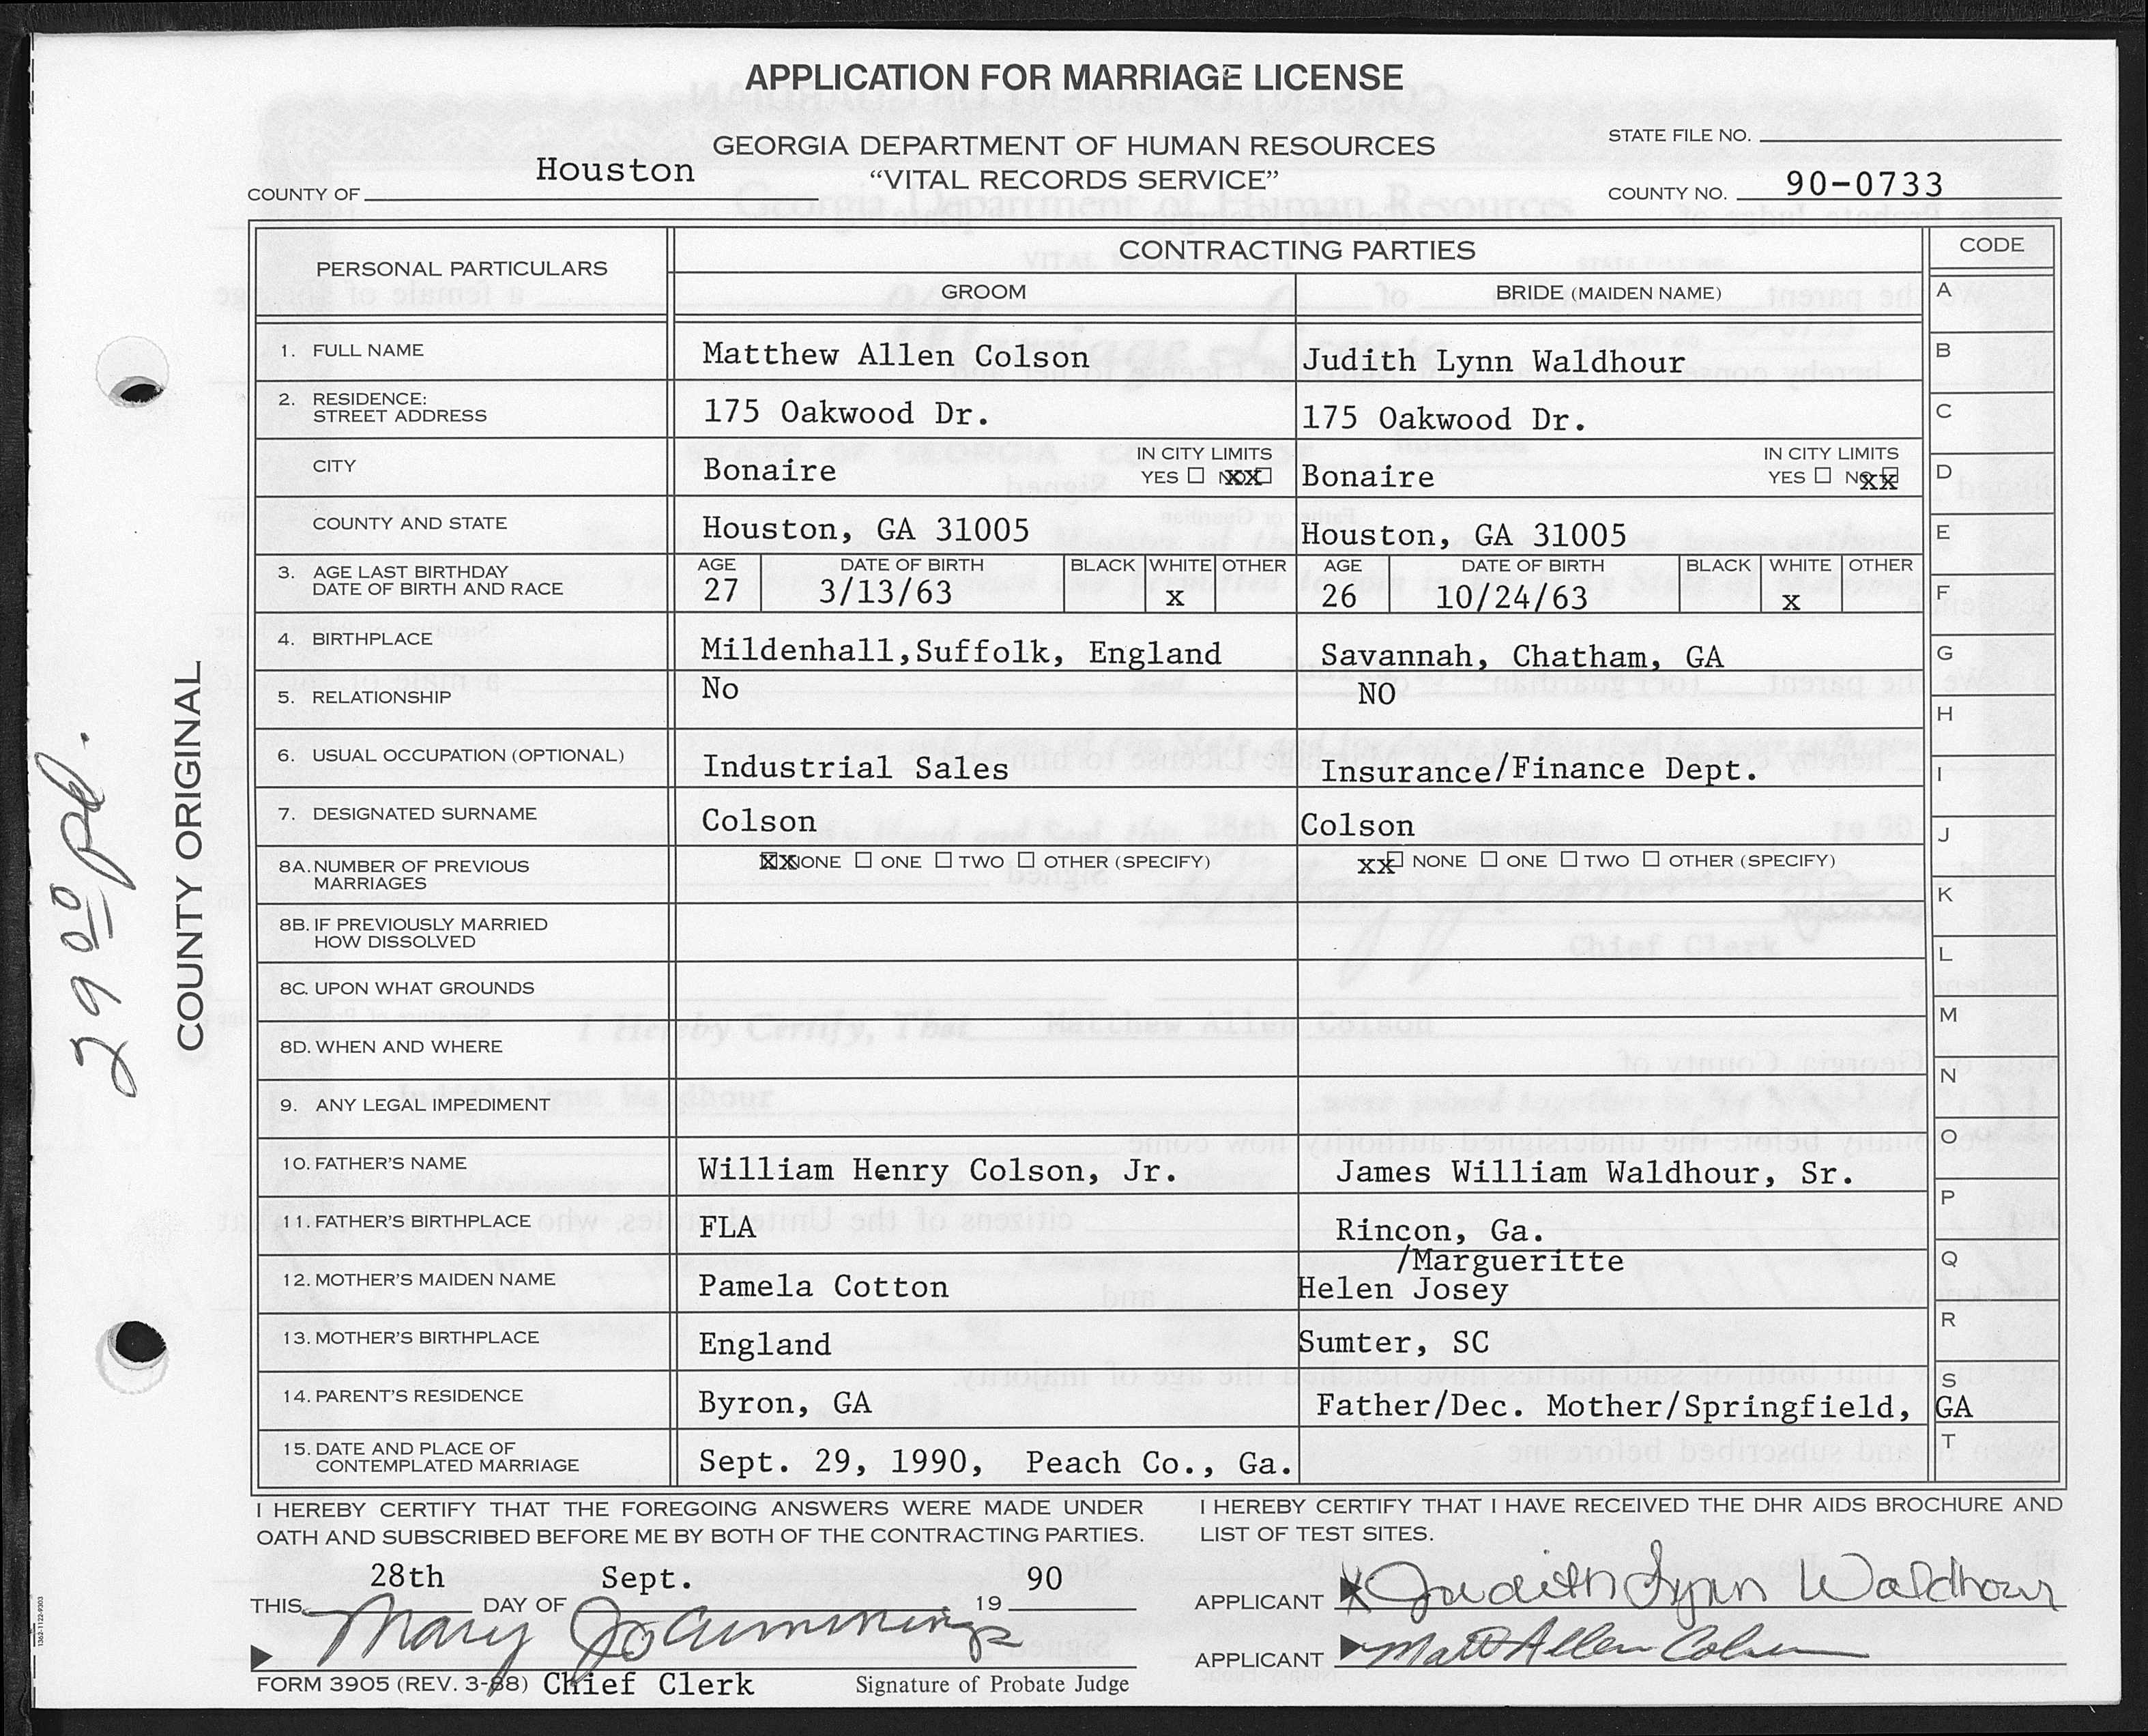 APPLICATION FOR MARRIAGE LICENSE
GEORGIA DEPARTMENT OF HUMAN RESOURCES
"VITAL RECORDS SERVICE"
STATE FILE NO.
COUNTY OF Houston
COUNTY NO. 90-0733
PERSONAL PARTICULARS
CONTRACTING PARTIES
CODE
GROOM
BRIDE (MAIDEN NAME)
A
1. FULL NAME Matthew Allen Colson Judith Lynn Waldhour B
2. RESIDENCE:
STREET ADDRESS 175 Oakwood Dr. 175 Oakwood Dr. C
IN CITY LIMITS IN CITY LIMITS
CITY Bonaire YES ☐ NO xx Bonaire YES ☐ NO xx D
COUNTY AND STATE Houston, GA 31005 Houston, GA 31005 E
3. AGE LAST BIRTHDAY AGE DATE OF BIRTH BLACK WHITE OTHER AGE DATE OF BIRTH BLACK WHITE OTHER
DATE OF BIRTH AND RACE 27 3/13/63 x 26 10/24/63 x F
4. BIRTHPLACE Mildenhall,Suffolk, England Savannah, Chatham, GA G
5. RELATIONSHIP No NO H
6. USUAL OCCUPATION (OPTIONAL) Industrial Sales Insurance/Finance Dept. I
7. DESIGNATED SURNAME Colson Colson J
8A. NUMBER OF PREVIOUS xx NONE ☐ ONE ☐ TWO ☐ OTHER (SPECIFY) xx☐ NONE ☐ ONE ☐ TWO ☐ OTHER (SPECIFY)
MARRIAGES K
8B. IF PREVIOUSLY MARRIED
HOW DISSOLVED L
8C. UPON WHAT GROUNDS M
8D. WHEN AND WHERE N
9. ANY LEGAL IMPEDIMENT O
10. FATHER'S NAME William Henry Colson, Jr. James William Waldhour, Sr. P
11. FATHER'S BIRTHPLACE FLA Rincon, Ga. Q
/Margueritte
12. MOTHER'S MAIDEN NAME Pamela Cotton Helen Josey
13. MOTHER'S BIRTHPLACE England Sumter, SC R
14. PARENT'S RESIDENCE Byron, GA Father/Dec. Mother/Springfield, GA S
15. DATE AND PLACE OF
CONTEMPLATED MARRIAGE Sept. 29, 1990, Peach Co., Ga. T
I HEREBY CERTIFY THAT THE FOREGOING ANSWERS WERE MADE UNDER
OATH AND SUBSCRIBED BEFORE ME BY BOTH OF THE CONTRACTING PARTIES.
I HEREBY CERTIFY THAT I HAVE RECEIVED THE DHR AIDS BROCHURE AND
LIST OF TEST SITES.
THIS 28th DAY OF Sept. 19 90
APPLICANT Judith Lynn Waldhour
Mary Jo Cummings
APPLICANT Matt Allen Colson
FORM 3905 (REV. 3-88) Chief Clerk Signature of Probate Judge
COUNTY ORIGINAL
29 00 pd.